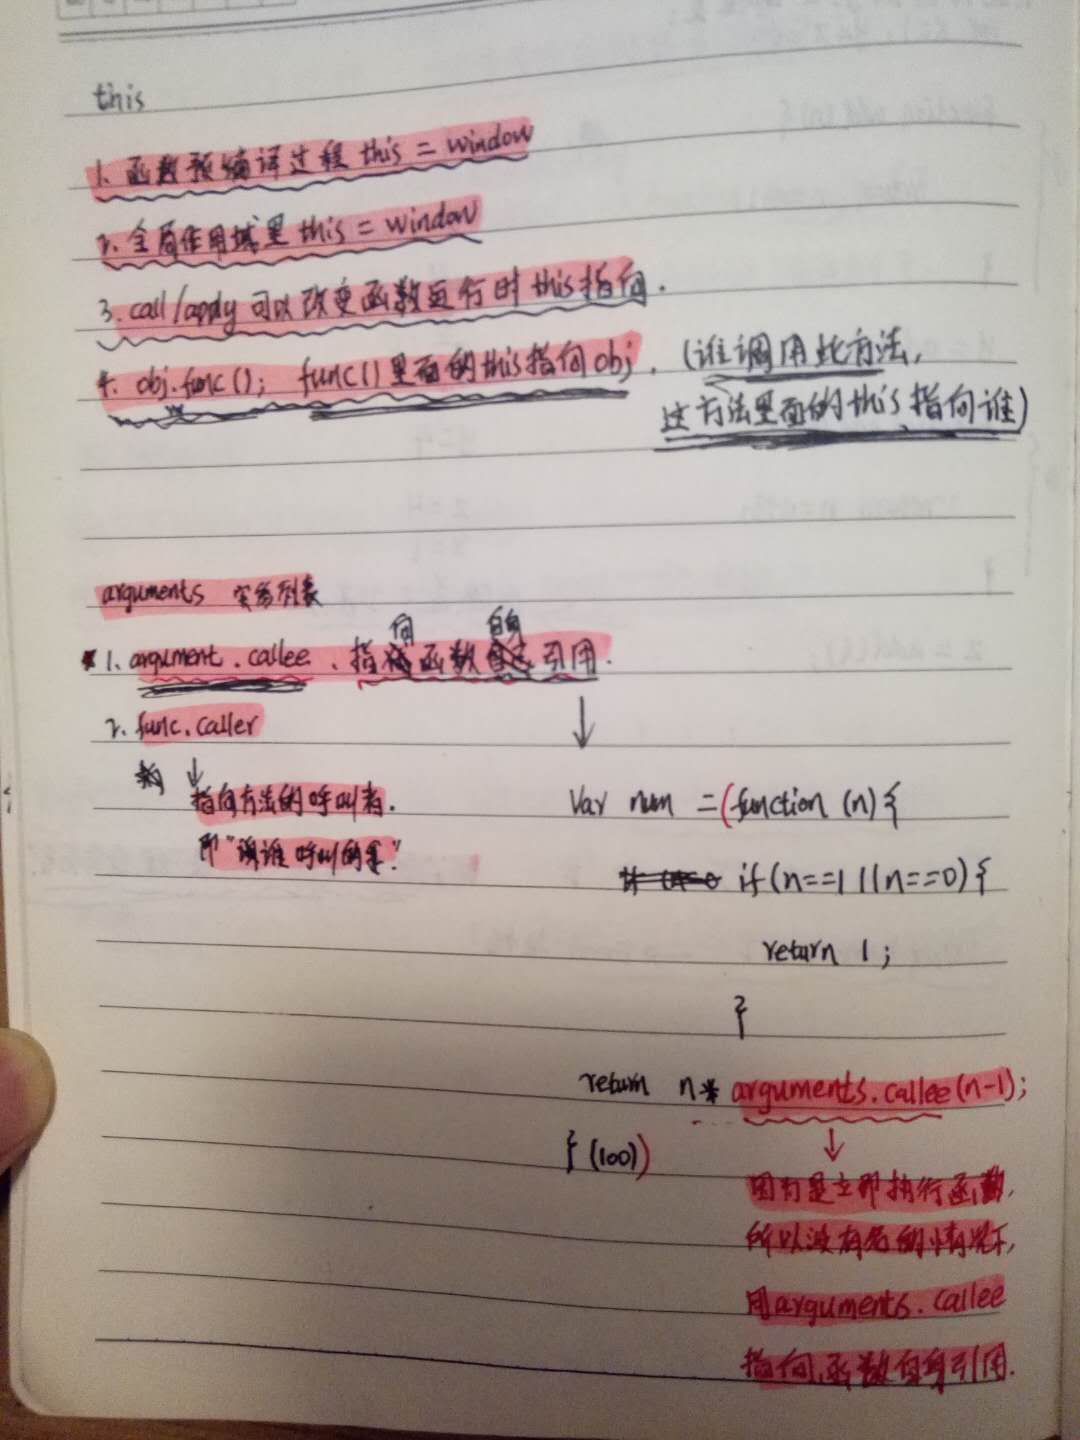 this
1. 函数预编译过程 this = window
2. 全局作用域里 this = window
3. call/apply 可以改变函数运行时 this 指向.
4. obj.func(); func()里面的this指向obj. (谁调用此方法,
这方法里面的this指向谁)
arguments 实参列表
1. argument.callee、指向函数自身引用.
2. func.caller
指向方法的呼叫者.
即"谁呼叫的
var num = (function (n) {
if (n==1 || n==0) {
return 1;
}
return n * arguments.callee(n-1);
} (100))
因为是立即执行函数,
所以没有名的情况下,
用arguments.callee
指向函数自身引用.